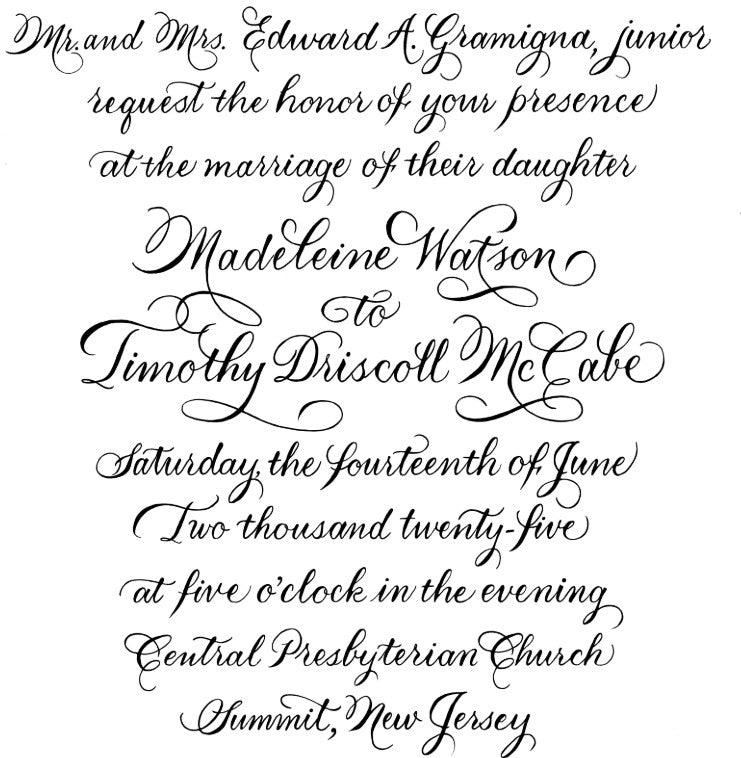 Mr. and Mrs. Edward A. Gramigna, junior
request the honor of your presence
at the marriage of their daughter
Madeleine Watson
to
Timothy Driscoll McCabe
Saturday, the fourteenth of June
Two thousand twenty-five
at five o'clock in the evening
Central Presbyterian Church
Summit, New Jersey